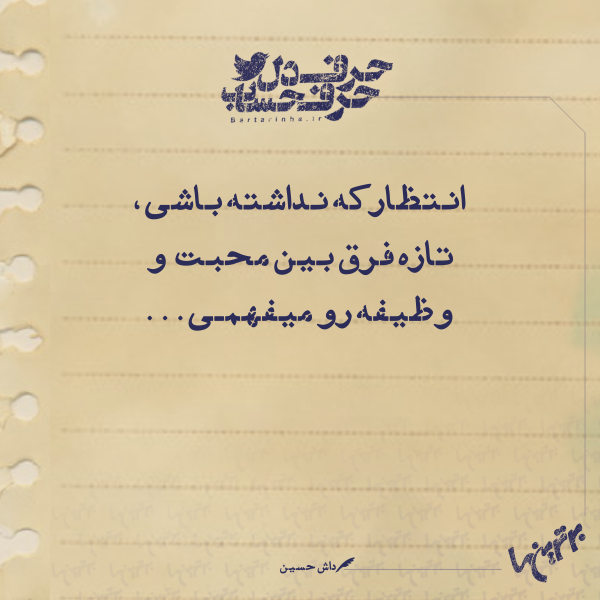 حرف دل
حرف حساب
Bartarinha.ir
انتظار که نداشته باشی،
تازه فرق بین محبت و
وظیفه رو میفهمی...
داش حسین
برترین‌ها